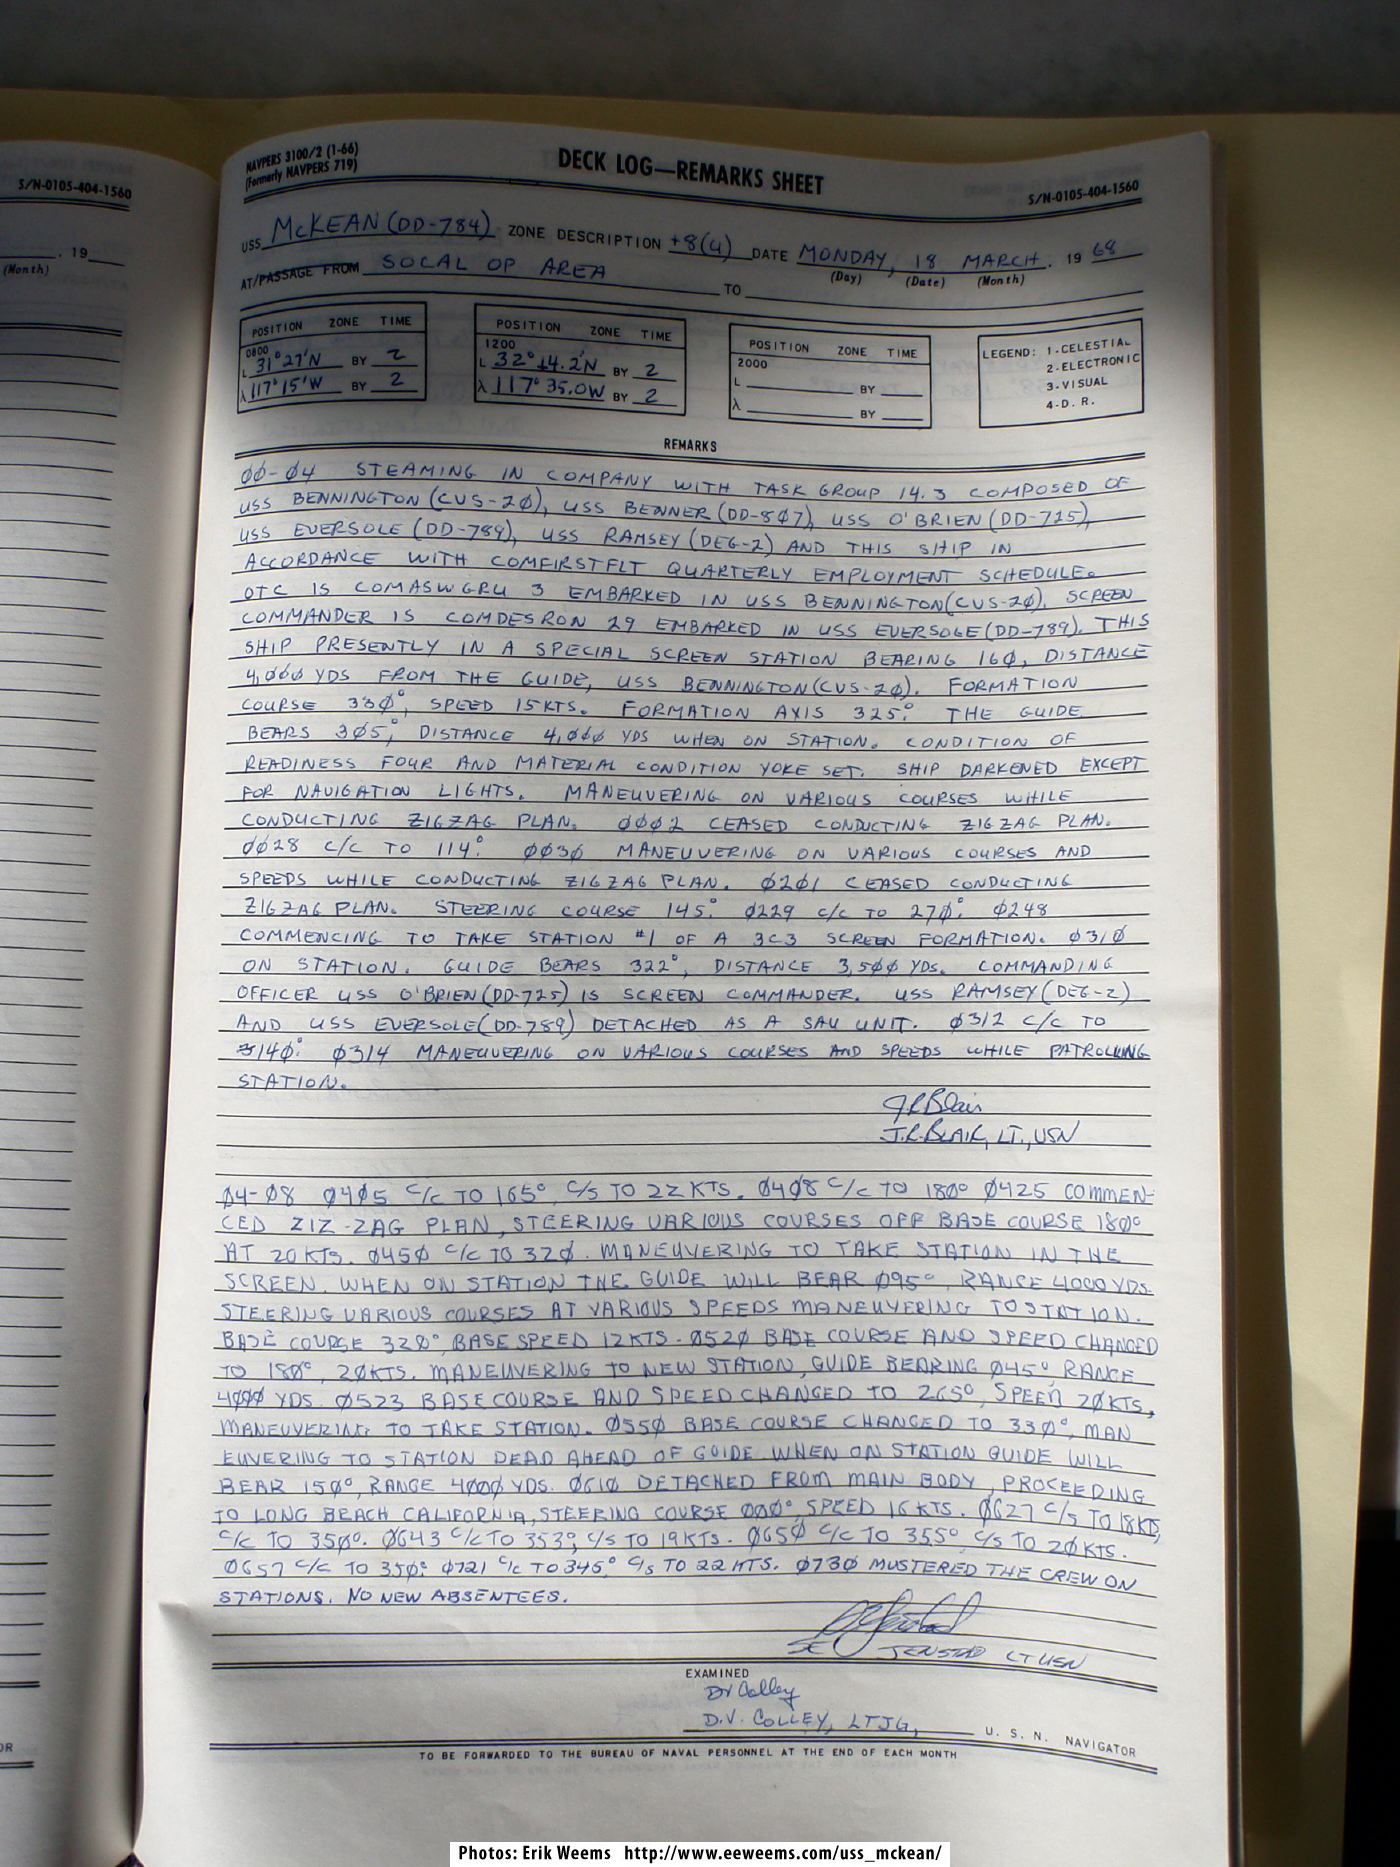 S/N-0105-404-1560
. 19
(Month)
NAVPERS 3100/2 (1-66)
(Formerly NAVPERS 719)
DECK LOG—REMARKS SHEET
S/N-0105-404-1560
USS McKEAN (DD-784) ZONE DESCRIPTION +8(U) DATE MONDAY, 18 MARCH. 19 68
(Day) (Date) (Month)
AT/PASSAGE FROM SOCAL OP AREA TO
POSITION ZONE TIME
0800
L 31°27'N BY 2
λ 117°15'W BY 2
POSITION ZONE TIME
1200
L 32° 14.2'N BY 2
λ 117° 35.0W BY 2
POSITION ZONE TIME
2000
L BY
λ BY
LEGEND: 1-CELESTIAL
2-ELECTRONIC
3-VISUAL
4-D. R.
REMARKS
00-04 STEAMING IN COMPANY WITH TASK GROUP 14.3 COMPOSED OF
USS BENNINGTON (CVS-20), USS BENNER (DD-807), USS O'BRIEN (DD-725),
USS EVERSOLE (DD-789), USS RAMSEY (DEG-2) AND THIS SHIP IN
ACCORDANCE WITH COMFIRSTFLT QUARTERLY EMPLOYMENT SCHEDULE.
OTC IS COMASWGRU 3 EMBARKED IN USS BENNINGTON (CVS-20). SCREEN
COMMANDER IS COMDESRON 29 EMBARKED IN USS EVERSOLE (DD-789). THIS
SHIP PRESENTLY IN A SPECIAL SCREEN STATION BEARING 160, DISTANCE
4,000 YDS FROM THE GUIDE, USS BENNINGTON (CVS-20). FORMATION
COURSE 330°, SPEED 15KTS. FORMATION AXIS 325°. THE GUIDE
BEARS 305°, DISTANCE 4,000 YDS WHEN ON STATION. CONDITION OF
READINESS FOUR AND MATERIAL CONDITION YOKE SET. SHIP DARKENED EXCEPT
FOR NAVIGATION LIGHTS. MANEUVERING ON VARIOUS COURSES WHILE
CONDUCTING ZIGZAG PLAN. 0002 CEASED CONDUCTING ZIGZAG PLAN.
0028 C/C TO 114°. 0030 MANEUVERING ON VARIOUS COURSES AND
SPEEDS WHILE CONDUCTING ZIGZAG PLAN. 0201 CEASED CONDUCTING
ZIGZAG PLAN. STEERING COURSE 145°. 0229 C/C TO 270°. 0248
COMMENCING TO TAKE STATION #1 OF A 3C3 SCREEN FORMATION. 0310
ON STATION. GUIDE BEARS 322°, DISTANCE 3,500 YDS. COMMANDING
OFFICER USS O'BRIEN (DD-725) IS SCREEN COMMANDER. USS RAMSEY (DEG-2)
AND USS EVERSOLE (DD-789) DETACHED AS A SAU UNIT. 0312 C/C TO
140°. 0314 MANEUVERING ON VARIOUS COURSES AND SPEEDS WHILE PATROLLING
STATION.
J.R. Blair
J.R. BLAIR, LT., USN
04-08 0405 C/C TO 165°, C/S TO 22 KTS. 0408 C/C TO 180° 0425 COMMEN-
CED ZIZ-ZAG PLAN, STEERING VARIOUS COURSES OFF BASE COURSE 180°
AT 20 KTS. 0450 C/C TO 320. MANEUVERING TO TAKE STATION IN THE
SCREEN. WHEN ON STATION THE GUIDE WILL BEAR 095°, RANGE 4000 YDS.
STEERING VARIOUS COURSES AT VARIOUS SPEEDS MANEUVERING TO STATION.
BASE COURSE 320°, BASE SPEED 12 KTS. 0520 BASE COURSE AND SPEED CHANGED
TO 180°, 20KTS. MANEUVERING TO NEW STATION, GUIDE BEARING 045°, RANGE
4000 YDS. 0523 BASE COURSE AND SPEED CHANGED TO 265°, SPEED 20KTS,
MANEUVERING TO TAKE STATION. 0550 BASE COURSE CHANGED TO 330°, MAN
EUVERING TO STATION DEAD AHEAD OF GUIDE. WHEN ON STATION GUIDE WILL
BEAR 150°, RANGE 4000 YDS. 0610 DETACHED FROM MAIN BODY, PROCEEDING
TO LONG BEACH CALIFORNIA, STEERING COURSE 000°, SPEED 16 KTS. 0627 C/S TO 18KTS,
C/C TO 350°. 0643 C/C TO 353°, C/S TO 19KTS. 0650 C/C TO 355°, C/S TO 20KTS.
0657 C/C TO 350°. 0721 C/C TO 345° C/S TO 22 KTS. 0730 MUSTERED THE CREW ON
STATIONS. NO NEW ABSENTEES.
JENSTAD LT USN
EXAMINED
DV Colley
D.V. COLLEY, LTJG, U. S. N. NAVIGATOR
TO BE FORWARDED TO THE BUREAU OF NAVAL PERSONNEL AT THE END OF EACH MONTH
Photos: Erik Weems http://www.eeweems.com/uss_mckean/